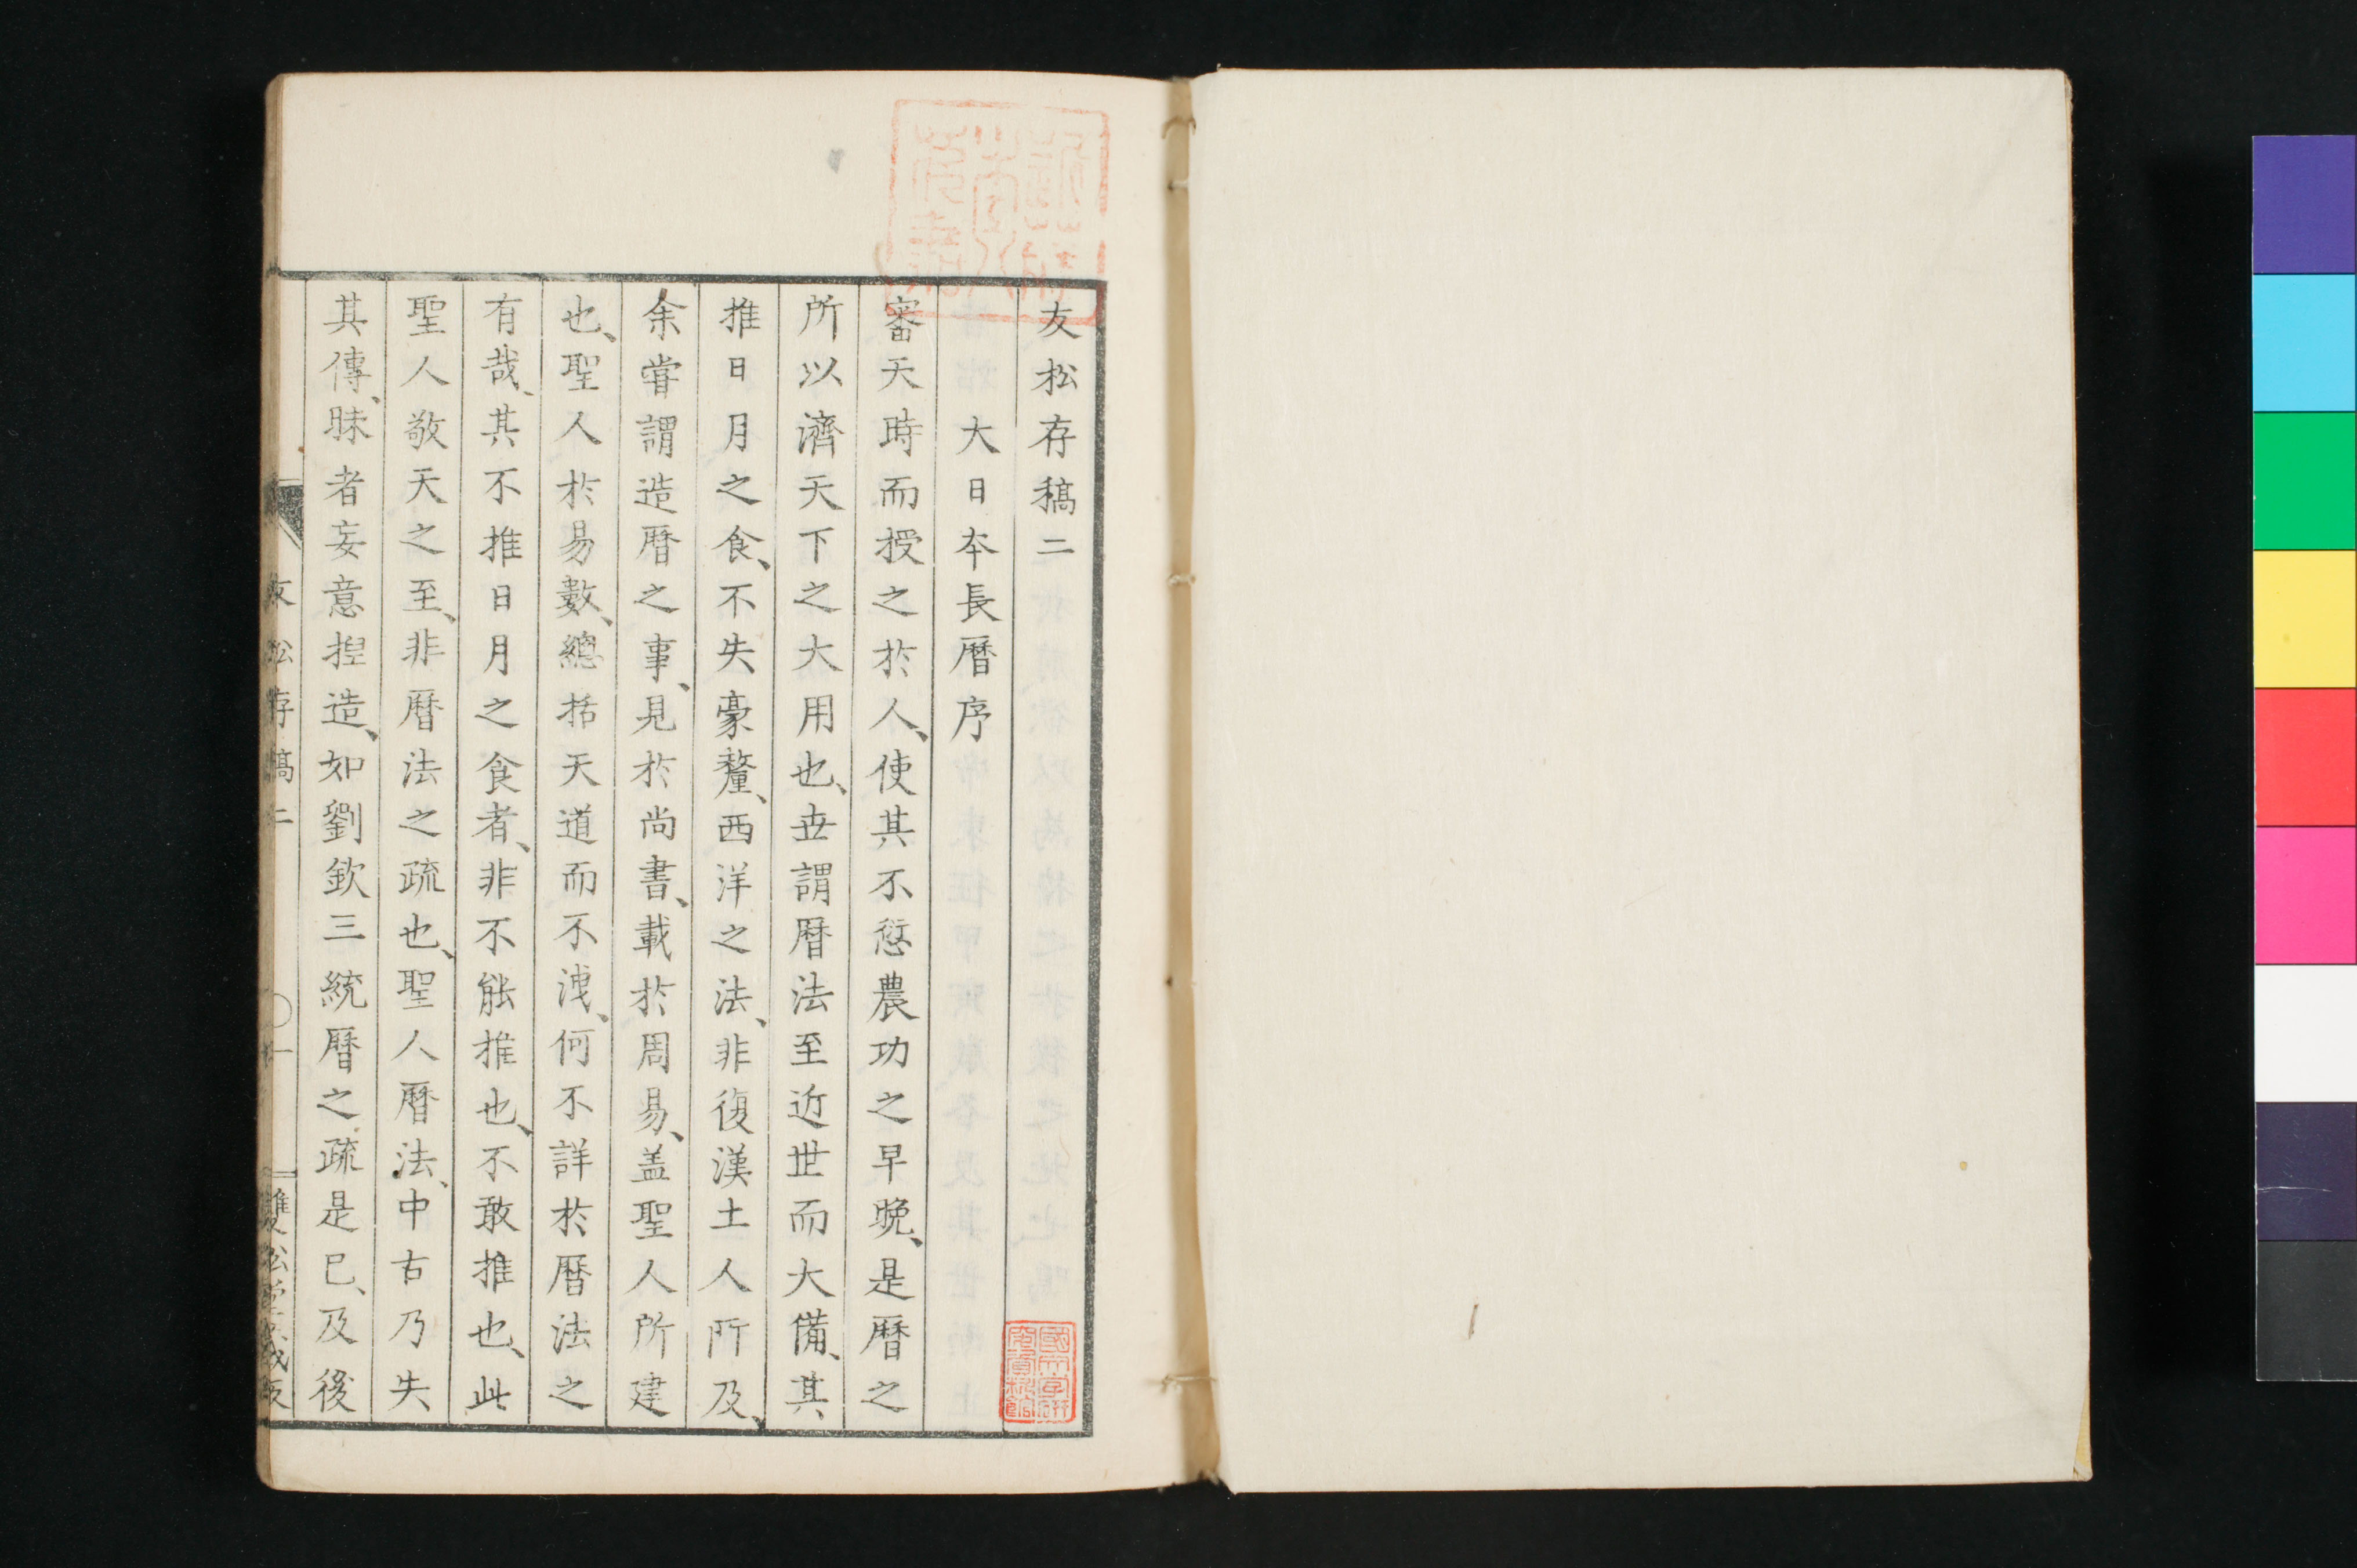 友松存稿二
大日本長曆序
審天時而授之於人、使其不愆農功之早晚、是曆之
所以濟天下之大用也、世謂曆法至近世而大備、其
推日月之食、不失豪釐、西洋之法、非復漢土人所及、
余嘗謂造曆之事、見於尚書、載於周易、盖聖人所建
也、聖人於易數、總括天道而不洩、何不詳於曆法之
有哉、其不推日月之食者、非不能推也、不敢推也、此
聖人敬天之至、非曆法之疏也、聖人曆法、中古乃失
其傳、昧者妄意揑造、如劉歆三統曆之疏是已、及後
友松存稿二
一
雙松堂藏版